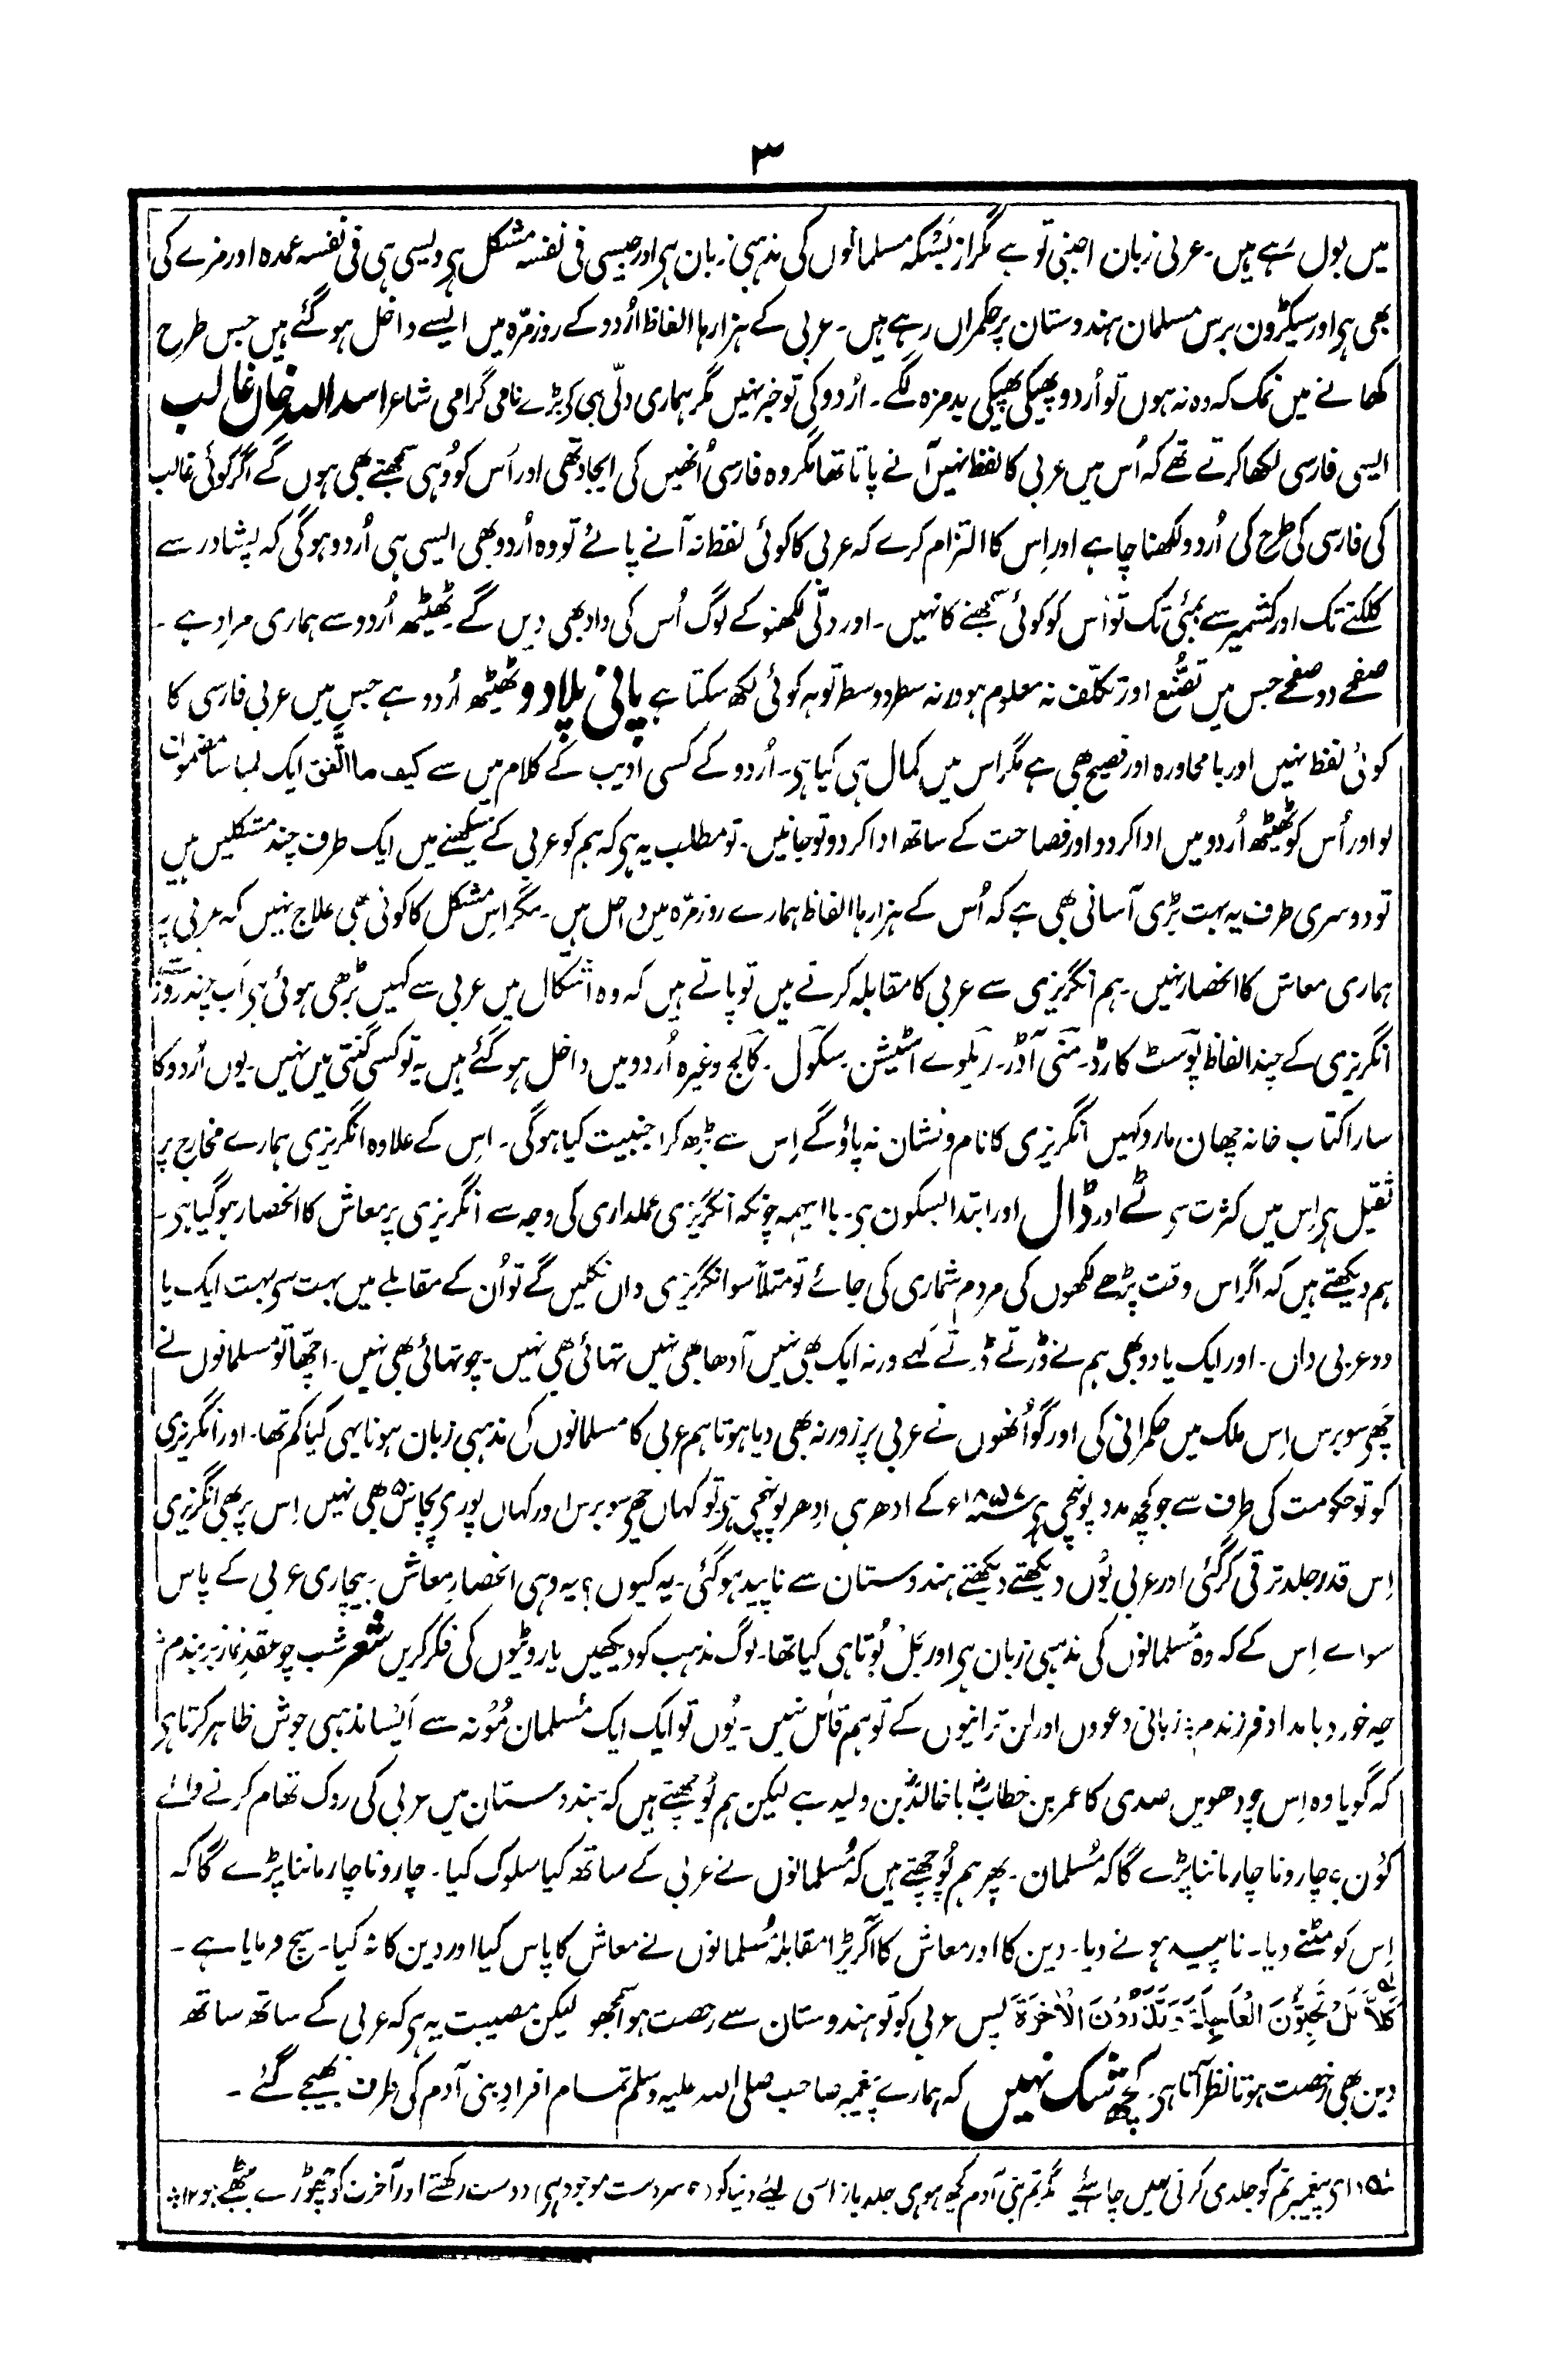 ۳
میں بول رہے ہیں۔ عربی زبان اجنبی تو ہے مگر از بسکہ مسلمانوں کی مذہبی زبان ہی اور جیسی فی نفسہ مشکل ہی ویسی ہی فی نفسہ عمدہ اور مزے کی
بھی ہی اور سیکڑون برس مسلمان ہندوستان پر حکمراں رہے ہیں۔ عربی کے ہزارہا الفاظ اُردو کے روزمرّہ میں ایسے داخل ہو گئے ہیں جس طرح
کھانے میں نمک کہ وہ نہ ہوں تو اُردو پھیکی پھیکی بدمزہ لگے۔ اُردو کی تو خبر نہیں مگر ہماری دلّی ہی کے بڑے نامی گرامی شاعر اسد اللہ خاں غالب
ایسی فارسی لکھا کرتے تھے کہ اُس میں عربی کا لفظ نہیں آنے پاتا تھا مگر وہ فارسی اُنھیں کی ایجاد تھی اور اُس کو وُہی سمجھتے بھی ہوں گے اگر کوئی غالب
کی فارسی کی طرح کی اُردو لکھنا چاہے اور اِس کا التزام کرے کہ عربی کا کوئی لفظ نہ آنے پائے تو وہ اُردو بھی ایسی ہی اُردو ہوگی کہ پشاور سے
کلکتے تک اور کشمیر سے بمبئی تک تو اُس کو کوئی سمجھنے کا نہیں۔ اور دلّی لکھنو کے لوگ اُس کی داد بھی دیں گے۔ ٹھیٹھ اُردو سے ہماری مراد ہے۔
صفحے دو صفحے جس میں تصنُّع اور تکلّف نہ معلوم ہو ورنہ سطر دو سطر تو ہر کوئی لکھ سکتا ہے پانی پلا دو ٹھیٹھ اُردو ہے جس میں عربی فارسی کا
کوئی لفظ نہیں اور بامحاورہ اور فصیح بھی ہے مگر اس میں کمال ہی کیا ہی۔ اُردو کے کسی ادیب کے کلام میں سے کیف ما اتَّفق ایک لمبا سا مضمون
لو اور اُس کو ٹھیٹھ اُردو میں ادا کردو اور فصاحت کے ساتھ ادا کردو تو جانیں۔ تو مطلب یہ ہی کہ ہم کو عربی کے سیکھنے میں ایک طرف چند مشکلیں ہیں
تو دوسری طرف یہ بہت بڑی آسانی بھی ہے کہ اُس کے ہزارہا الفاظ ہمارے روزمرّہ میں داخل ہیں۔ مگر اِس مشکل کا کوئی بھی علاج نہیں کہ عربی پر
ہماری معاش کا انحصار نہیں۔ ہم انگریزی سے عربی کا مقابلہ کرتے ہیں تو پاتے ہیں کہ وہ اشکال میں عربی سے کہیں بڑھی ہوئی ہی اَب چند روز سے
انگریزی کے چند الفاظ پوسٹ کارڈ۔ منی آڈر۔ ریلوے اسٹیشن۔ سکول۔ کالج وغیرہ اُردو میں داخل ہو گئے ہیں یہ تو کسی گنتی میں نہیں۔ یوں اُردو کا
سارا کتاب خانہ چھان مارو کہیں انگریزی کا نام و نشان نہ پاؤگے اِس سے بڑھ کر اجنبیت کیا ہوگی۔ اِس کے علاوہ انگریزی ہمارے مخارج پر
ثقیل ہی اِس میں کثرت سے ٹے اور ڈال اور ابتدا بسکون ہی۔ با اینہمہ چونکہ انگریزی عملداری کی وجہ سے انگریزی پر معاش کا انحصار ہو گیا ہی۔
ہم دیکھتے ہیں کہ اگر اس وقت پڑھے لکھوں کی مردم شماری کی جائے تو مثلاً سو انگریزی داں نکلیں گے تو اُن کے مقابلے میں بہت سے بہت ایک یا
دو عربی داں۔ اور ایک یا دو بھی ہم نے ڈرتے ڈرتے کہے ورنہ ایک بھی نہیں آدھا بھی نہیں تہائی بھی نہیں۔ چوتھائی بھی نہیں۔ اچھّا تو مسلمانوں نے
چھ سو برس اِس ملک میں حکمرانی کی اور گو اُنھوں نے عربی پر زور نہ بھی دیا ہو تاہم عربی کا مسلمانوں کی مذہبی زبان ہونا یہی کیا کم تھا۔ اور انگریزی
کو تو حکومت کی طرف سے جو کچھ مدد پونہچی ہی ۱۸۵۷ء کے ادھر ہی اِدھر پونہچی ہی تو کہاں چھ سو برس اور کہاں پورے پچاس بھی نہیں اِس پر بھی انگریزی
اِس قدر جلد ترقی کر گئی اور عربی یُوں دیکھتے دیکھتے ہندوستان سے ناپید ہو گئی۔ یہ کیوں؟ یہ وہی انحصارِ معاش۔ بیچاری عربی کے پاس
سواے اِس کے کہ وہ مُسلمانوں کی مذہبی زبان ہی اور بَل بُوتا ہی کیا تھا۔ لوگ مذہب کو دیکھیں یا روٹیوں کی فکر کریں شعر شب چو عقدِ نماز بر بندم؞
چہ خورد بامداد فرزندم؞ زبانی دعووں اور لن ترانیوں کے تو ہم قائل نہیں۔ یُوں تو ایک ایک مُسلمان مُونہ سے اَیسا مذہبی جوش ظاہر کرتا ہی
کہ گویا وہ اِس چودھویں صدی کا عمر بن خطابؓ یا خالدؓ بن ولید ہے لیکن ہم پُوچھتے ہیں کہ ہندوستان میں عربی کی روک تھام کرنے والے
کَون؟ چار و ناچار ماننا پڑے گا کہ مُسلمان۔ پھر ہم پُوچھتے ہیں کہ مُسلمانوں نے عربی کے ساتھ کیا سلوک کیا۔ چار و ناچار ماننا پڑے گا کہ
اِس کو مٹنے دیا۔ ناپید ہونے دیا۔ دین کا اور معاش کا آکر پڑا مقابلہ مُسلمانوں نے معاش کا پاس کیا اور دین کا نہ کیا۔ سچ فرمایا ہے۔
كَلَّا بَلْ تُحِبُّونَ الْعَاجِلَةَ وَتَذَرُونَ الْاٰخِرَةَ پس عربی کو تو ہندوستان سے رخصت ہوا سمجھو لیکن مصیبت یہ ہی کہ عربی کے ساتھ ساتھ
دین بھی رخصت ہوتا نظر آتا ہی۔ کچھ شک نہیں کہ ہمارے پیغمبر صاحب صلی اللہ علیہ وسلم تمام افرادِ بنی آدم کی طرف بھیجے گئے۔
(ای پیغمبر تم کو جلدی کرنی نہیں چاہیے) مگر تم بنی آدم کچھ ہو ہی جلد باز اسی لیے دنیا کو (کہ سردست موجود ہی) دوست رکھتے اور آخرت کو چھوڑے بیٹھے ہو ۱۲؞